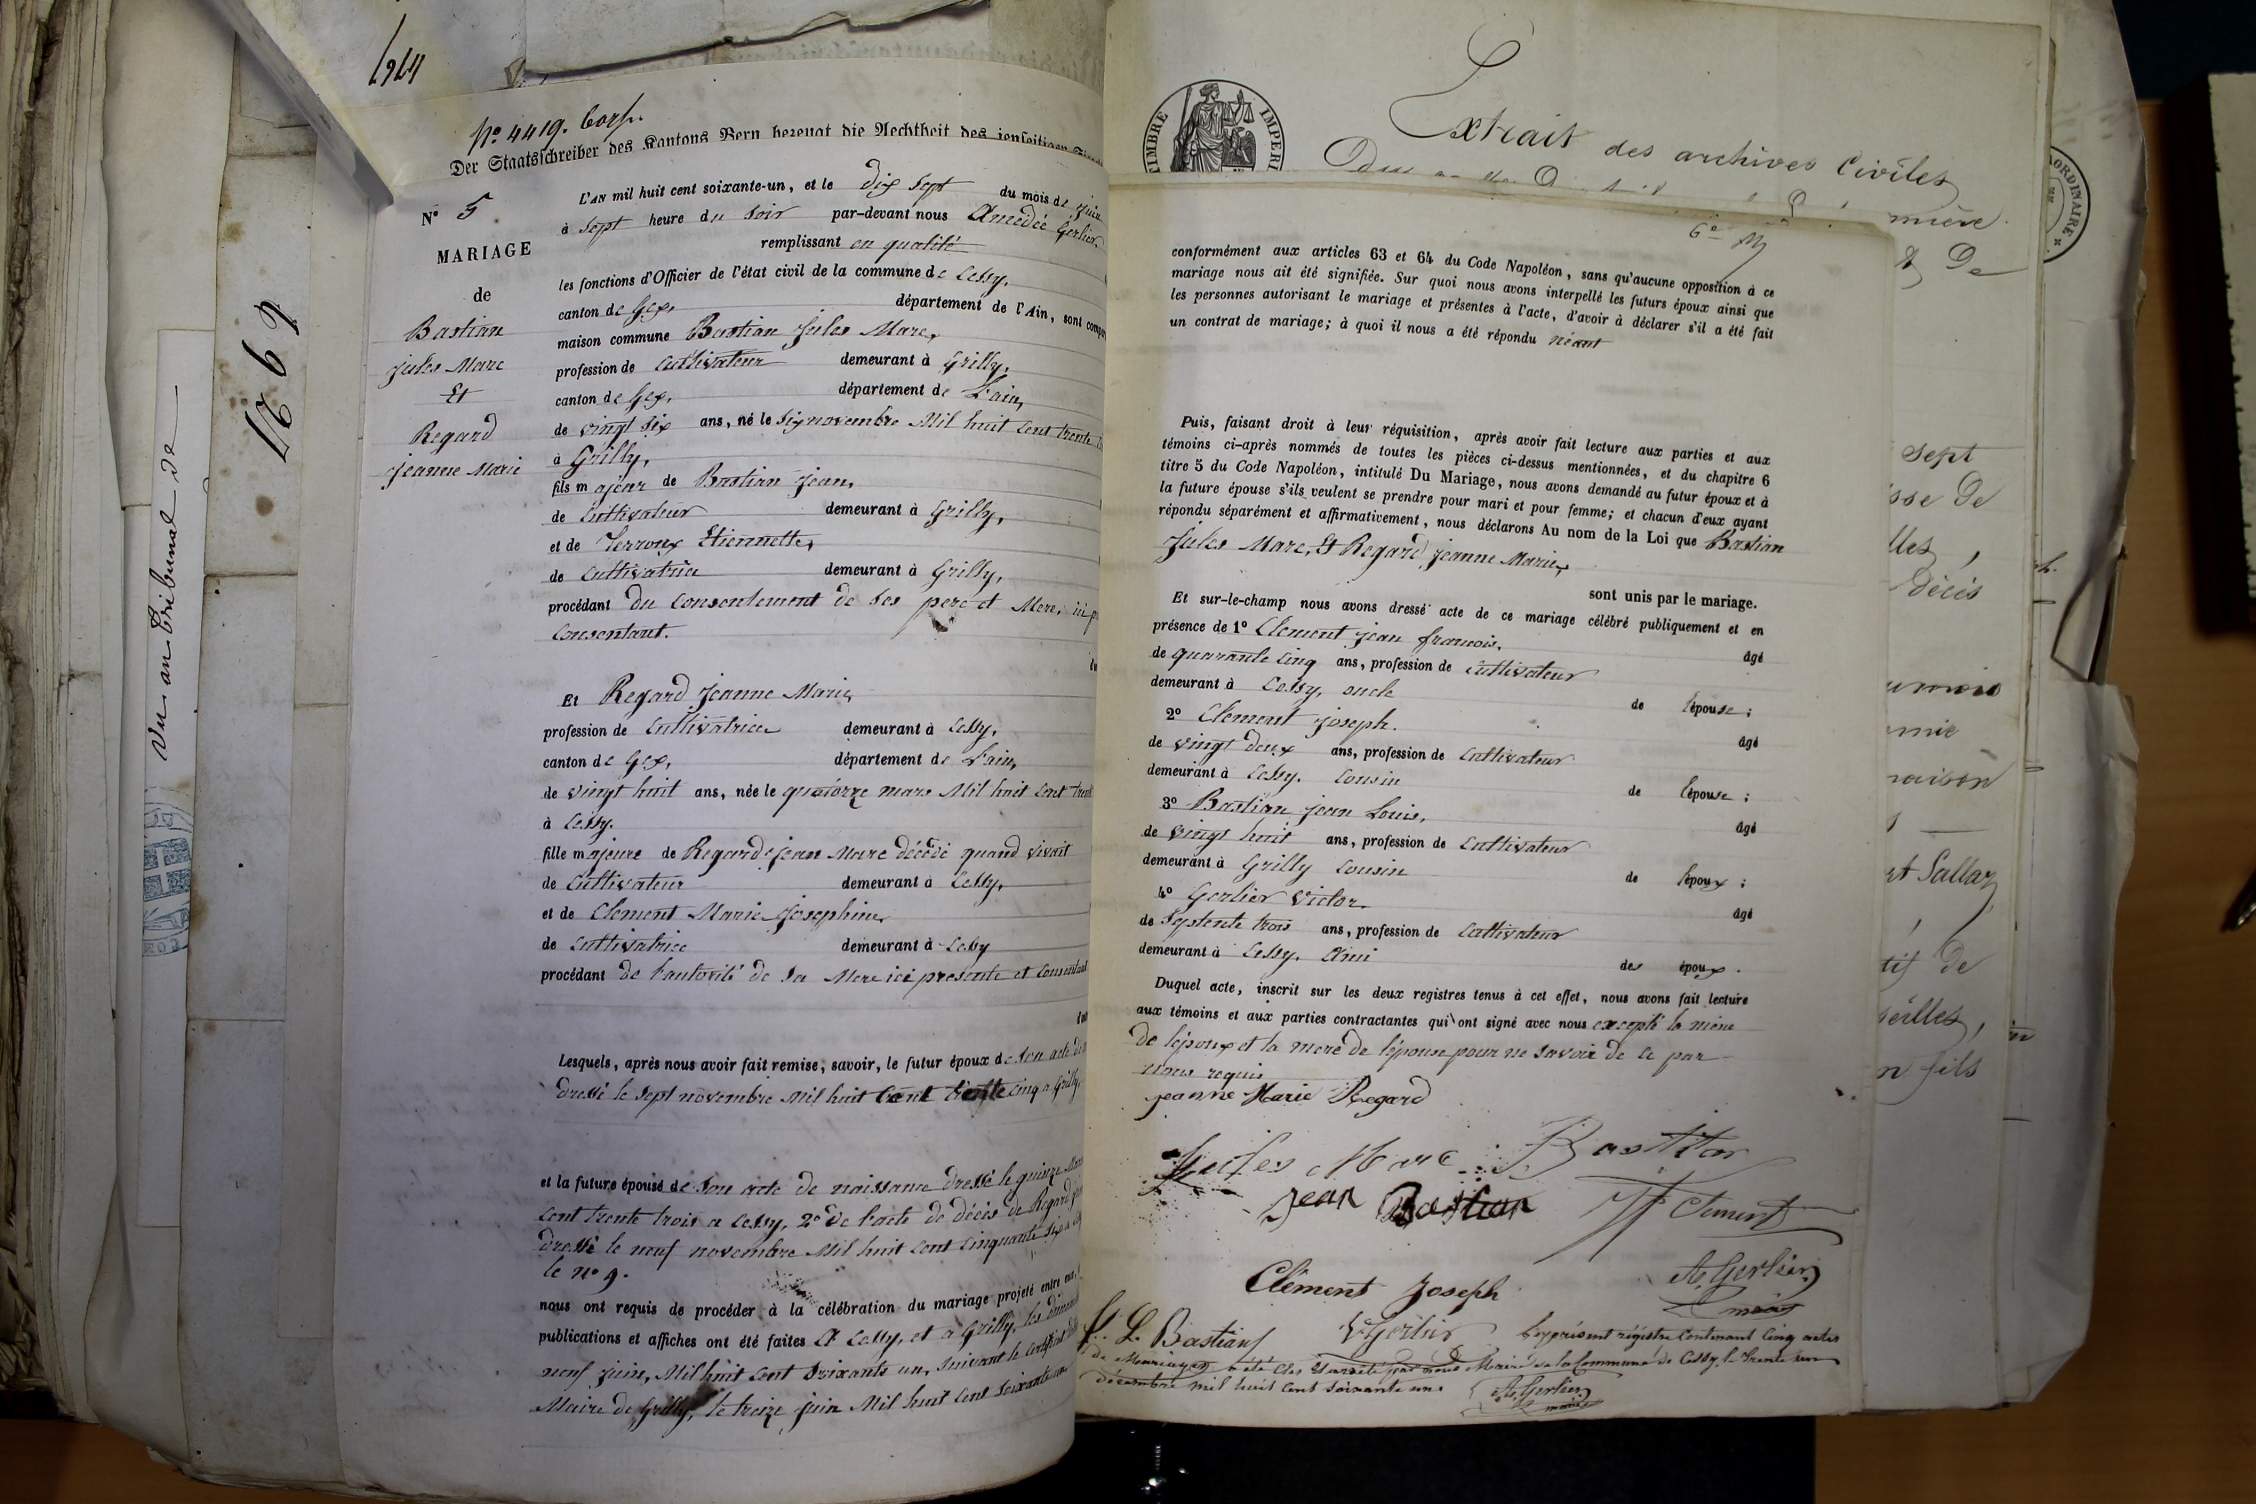 1964
N° 4419. Corp.
Der Staatsschreiber des Kantons Bern bezeugt die Aechtheit des jenseitigen
4969
Vu au Tribunal de
N° 5
MARIAGE
de
Bastian
Jules Marc
Et
Regard
Jeanne Marie
L'AN mil huit cent soixante-un, et le dix sept du mois de juin
à sept heure du soir par-devant nous Amédée Gerlier
remplissant en qualité
les fonctions d'Officier de l'état civil de la commune de Cessy,
canton de Gex, département de l'Ain, sont
maison commune Bastian Jules Marc,
profession de Cultivateur demeurant à Grilly,
canton de Gex, département de l'ain,
de vingt six ans, né le novembre Mil huit cent trente
à Grilly,
fils majeur de Bastian Jean,
de Cultivateur demeurant à Grilly,
et de Terroux Etiennette,
de Cultivatrice demeurant à Grilly,
procédant du consentement de ses pere et Mere, ici
consentant.
Et Regard Jeanne Marie,
profession de Cultivatrice demeurant à Cessy,
canton de Gex, département de l'ain,
de vingt huit ans, née le quatorze mars Mil huit cent
à Cessy.
fille majeure de Regard Jean Marc décédé quand vivait
de Cultivateur demeurant à Cessy,
et de Clement Marie Josephine,
de Cultivatrice demeurant à Cessy
procédant de l'autorité de sa Mere ici presente et consentant
Lesquels, après nous avoir fait remise, savoir, le futur époux de son acte de
dressé le sept novembre Mil huit cent trente cinq a Grilly,
et la future épouse de son acte de naissance dressé le quinze Mars
cent trente trois a Cessy, 2° de l'acte de décès de Regard
dressé le neuf novembre Mil huit cent cinquante six a
le N° 9.
nous ont requis de procéder à la célébration du mariage projeté entre eux,
publications et affiches ont été faites à Cessy, et a Grilly, les
neuf juin, Mil huit cent soixante un, suivant le certificat
Maire de Grilly, le treize juin Mil huit cent soixante un
TIMBRE IMPERI
Extrait des archives Civiles
ORDINAIRE
conformément aux articles 63 et 64 du Code Napoléon, sans qu'aucune opposition à ce
mariage nous ait été signifiée. Sur quoi nous avons interpellé les futurs époux ainsi que
les personnes autorisant le mariage et présentes à l'acte, d'avoir à déclarer s'il a été fait
un contrat de mariage; à quoi il nous a été répondu néant
Puis, faisant droit à leur réquisition, après avoir fait lecture aux parties et aux
témoins ci-après nommés de toutes les pièces ci-dessus mentionnées, et du chapitre 6
titre 5 du Code Napoléon, intitulé Du Mariage, nous avons demandé au futur époux et à
la future épouse s'ils veulent se prendre pour mari et pour femme; et chacun d'eux ayant
répondu séparément et affirmativement, nous déclarons Au nom de la Loi que Bastian
Jules Marc, Et Regard Jeanne Marie,
sont unis par le mariage.
Et sur-le-champ nous avons dressé acte de ce mariage célébré publiquement et en
présence de 1° Clement Jean francois, âgé
de quarante cinq ans, profession de Cultivateur
demeurant à Cessy, oncle de l'épouse;
2° Clement Joseph. âgé
de vingt deux ans, profession de Cultivateur
demeurant à Cessy. Cousin de l'épouse;
3° Bastian Jean Louis, âgé
de vingt huit ans, profession de Cultivateur
demeurant à Grilly Cousin de l'époux;
4° Gerlier Victor. âgé
de Septente trois ans, profession de Cultivateur
demeurant à Cessy. Ami des époux.
Duquel acte, inscrit sur les deux registres tenus à cet effet, nous avons fait lecture
aux témoins et aux parties contractantes qui ont signé avec nous excepté la mère
de l'époux et la mere de l'épouse pour ne savoir de ce par
nous requis
Jeanne Marie Regard
Jules Marc Bastian
Jean Bastian Jf Clement
Clément Joseph A. Gerlier
maire
J. L. Bastian V Gerlier Le présent régistre contenant cinq actes
de Mariages a été clos et arrêté par nous Maire de la Commune de Cessy, le trente un
décembre mil huit cent soixante un. A. Gerlier
maire
mière
De
sept
sse De
lles,
Décès
raison
Sallaz
tif de
n fils